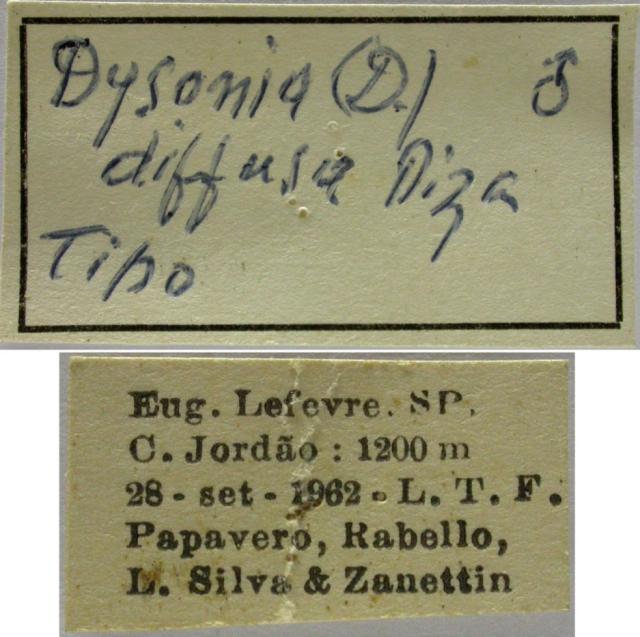 Dysonia (D.) ♂
diffusa Piza
Tipo
Eug. Lefevre. SP.
C. Jordão : 1200 m
28 - set - 1962 - L. T. F.
Papavero, Rabello,
L. Silva & Zanettin